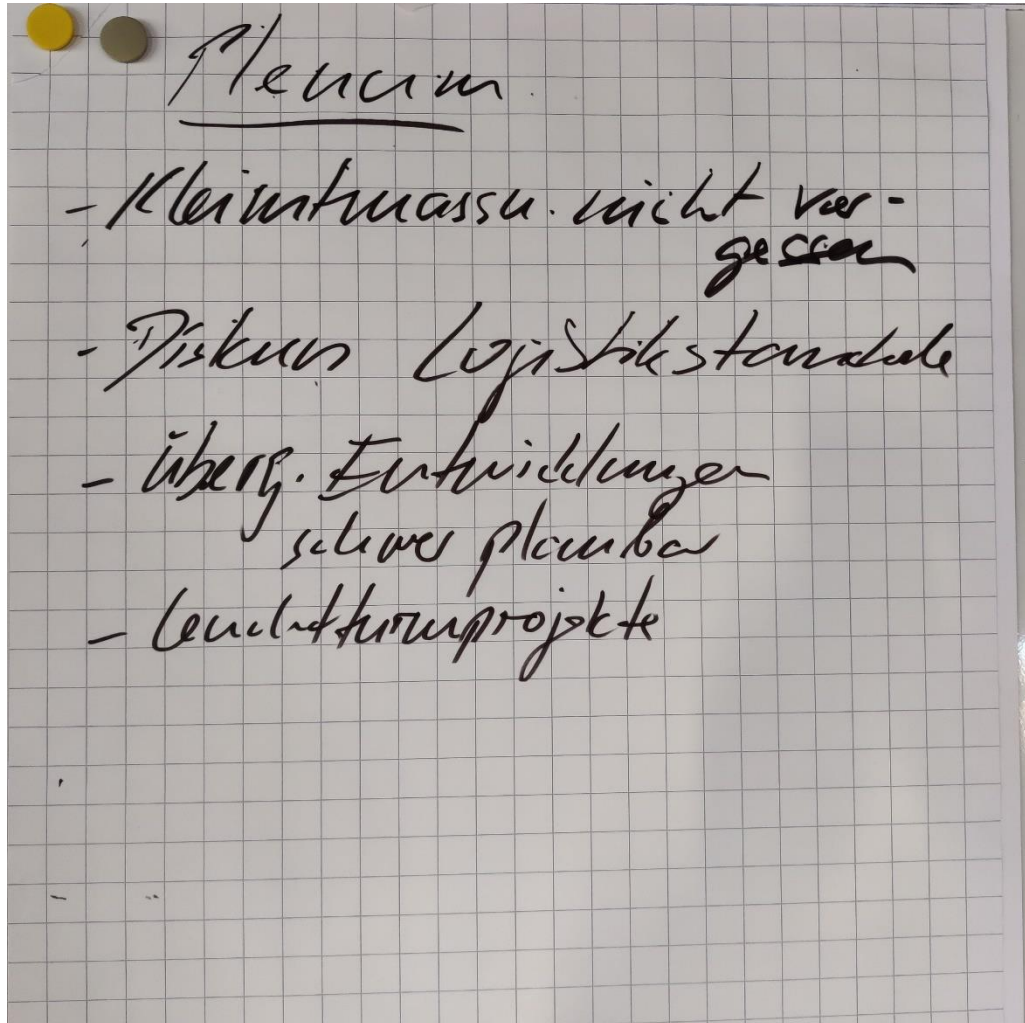 Plenum
- Kleinstmassn. nicht ver-
gessen
- Diskurs Logistikstandorte
- überg. Entwicklungen
schwer planbar
- Leuchtturmprojekte